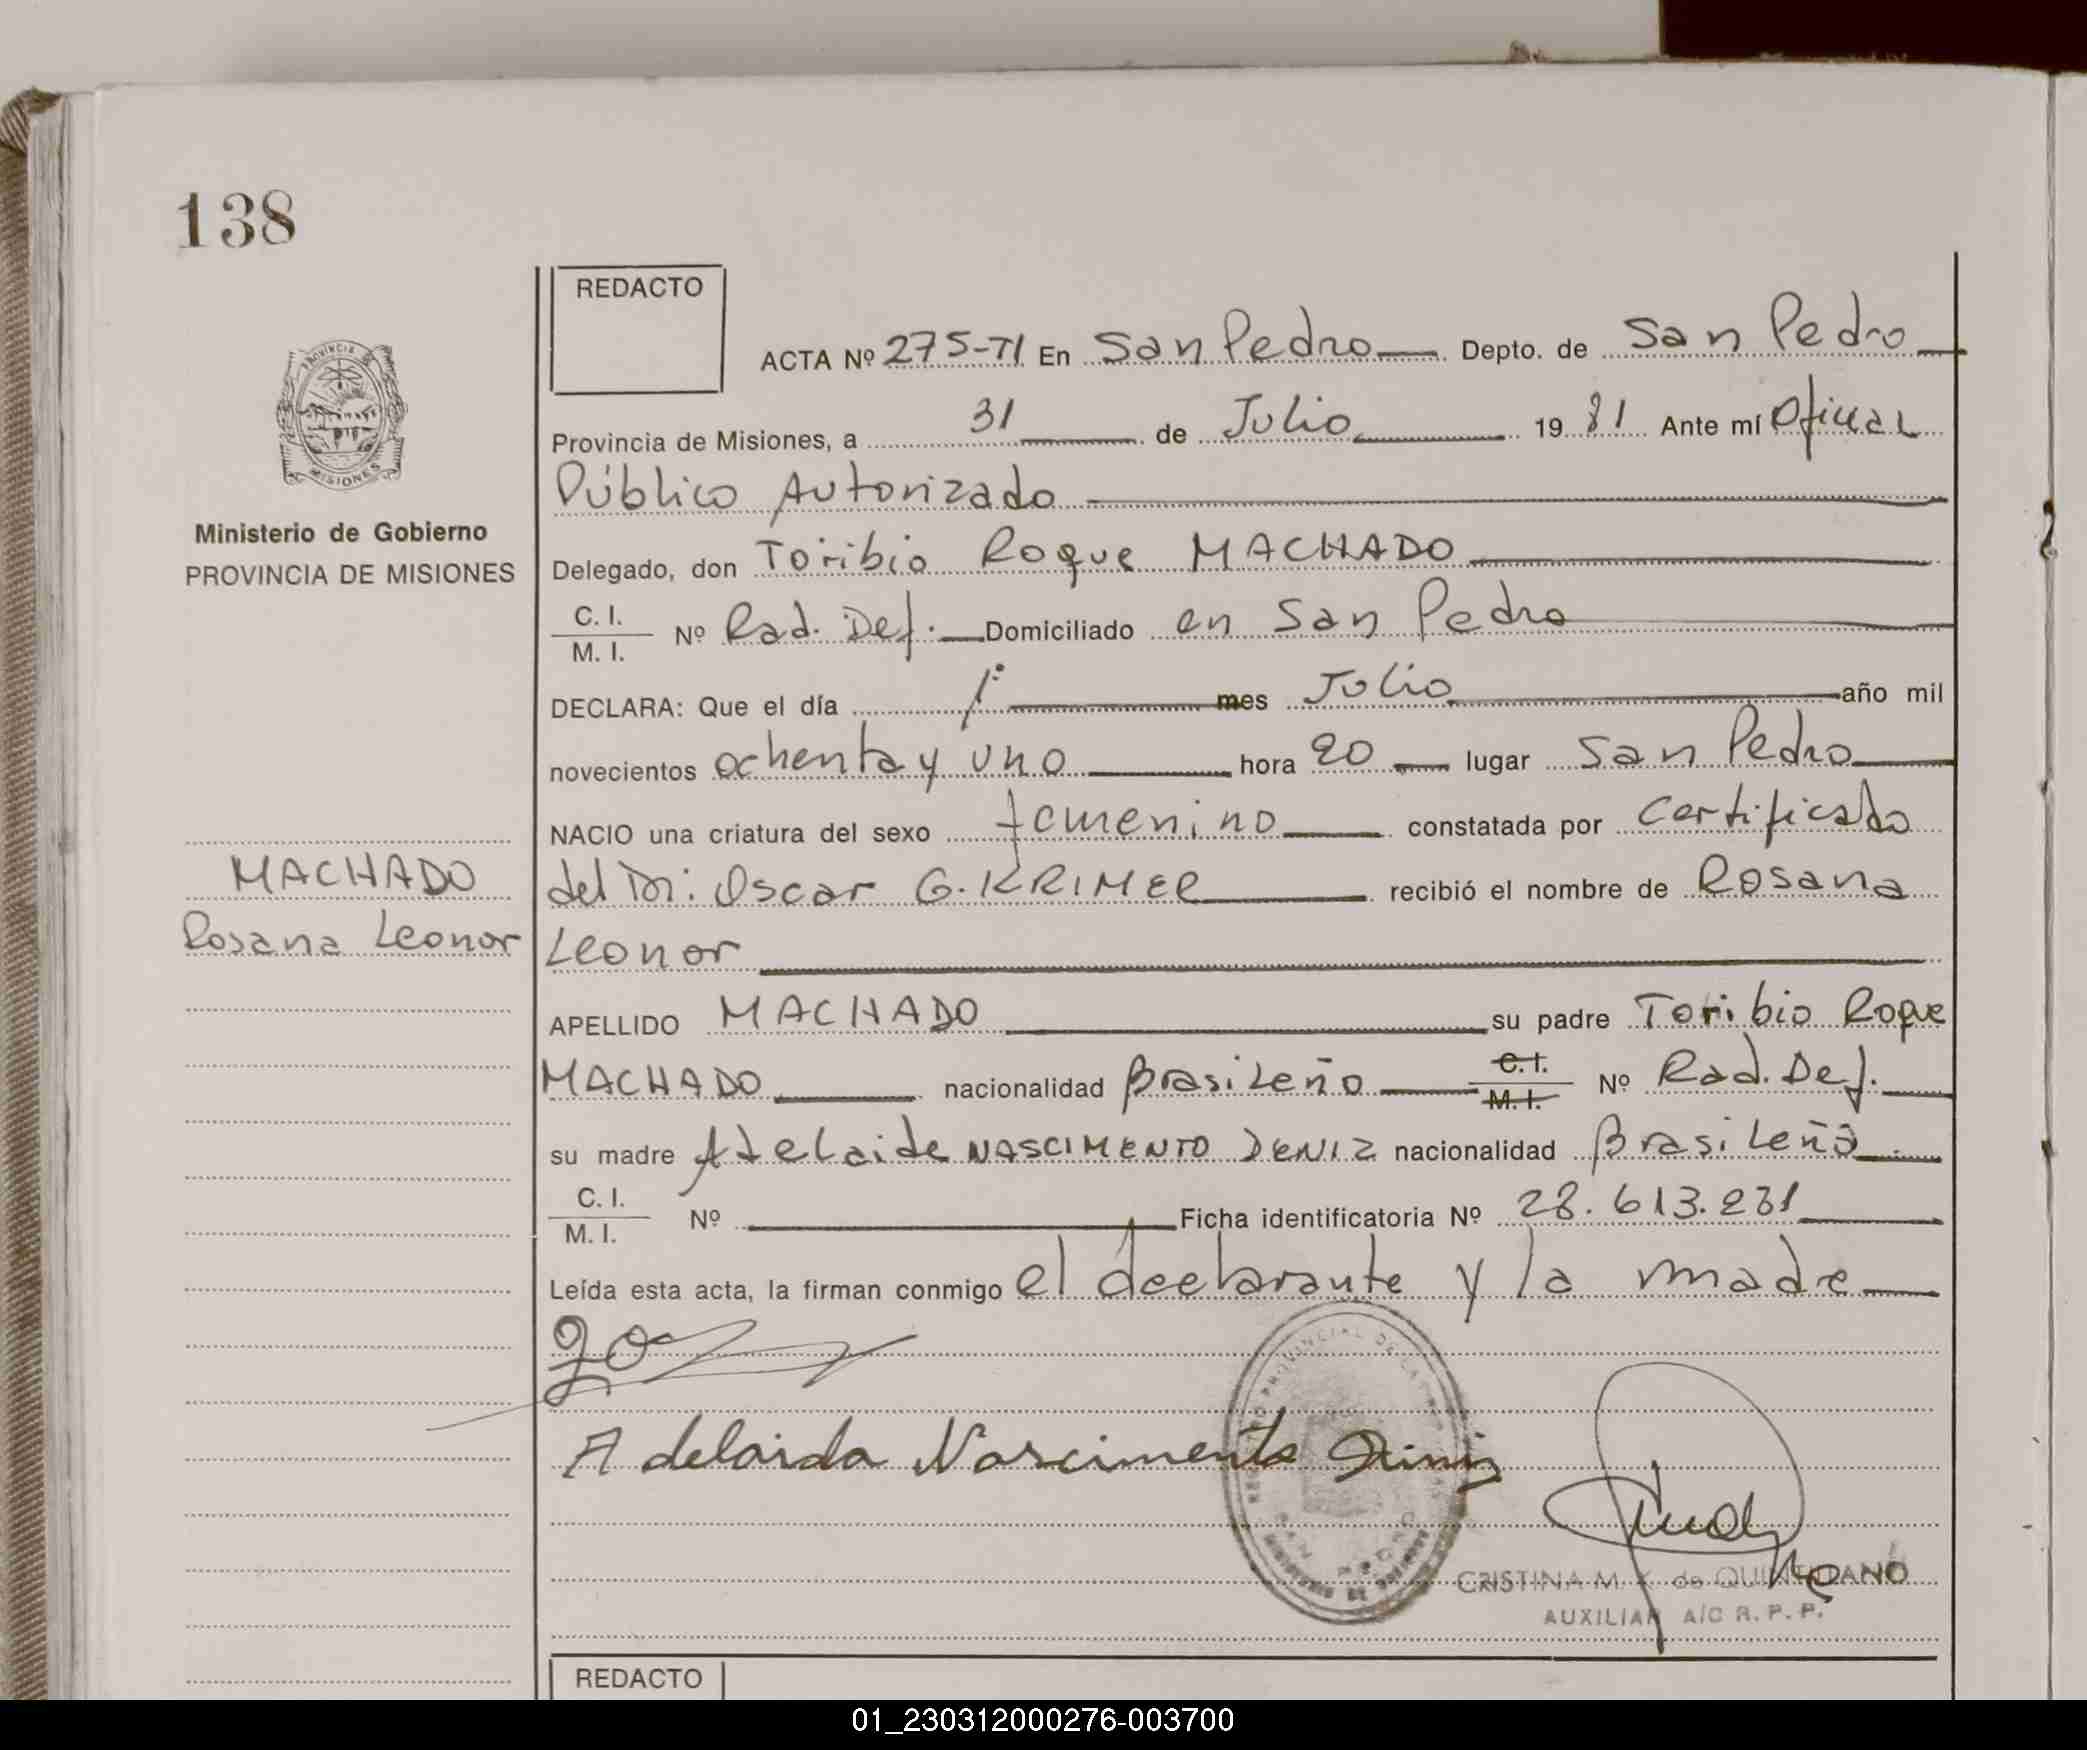 138
REDACTO
ACTA Nº 275-TI En San Pedro Depto. de San Pedro
PROVINCIA DE MISIONES
Provincia de Misiones, a 31 de Julio 1981 Ante mí Oficial
Público Autorizado
Ministerio de Gobierno
PROVINCIA DE MISIONES
Delegado, don Toribio Roque MACHADO
C. I. M. I. Nº Rad. Def. Domiciliado en San Pedro
DECLARA: Que el día 1º mes Julio año mil
novecientos ochenta y uno hora 20 lugar San Pedro
NACIO una criatura del sexo femenino constatada por certificado
MACHADO
del Dr. Oscar G. KRIMER recibió el nombre de Rosana
Rosana Leonor
Leonor
APELLIDO MACHADO su padre Toribio Roque
MACHADO nacionalidad Brasileño C. I. M. I. Nº Rad. Def.
su madre Adelaide NASCIMENTO DENIZ nacionalidad Brasileña
C. I. M. I. Nº Ficha identificatoria Nº 28.613.281
Leída esta acta, la firman conmigo el declarante y la madre
Adelaida Nascimento Diniz
SAN PEDRO
CRISTINA M. K. de QUINTANO
AUXILIAR A/C R. P. P.
REDACTO
01_230312000276-003700